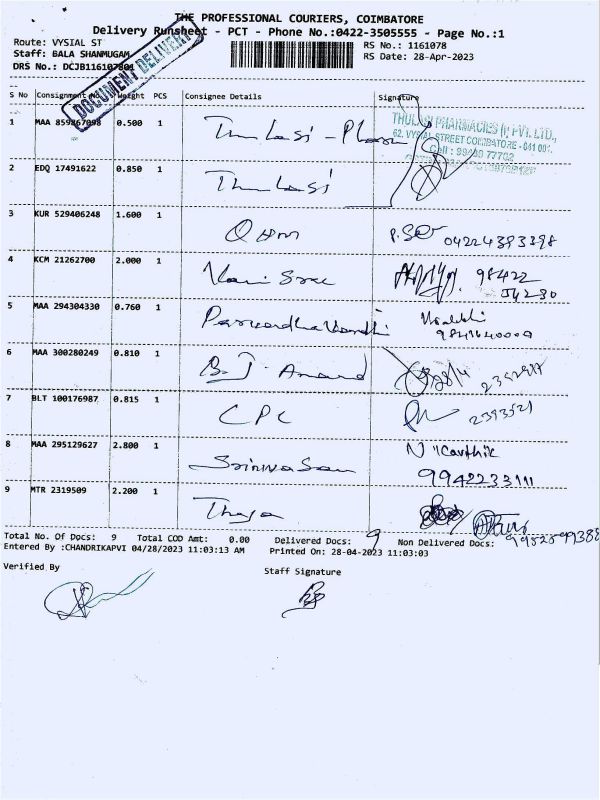 THE PROFESSIONAL COURIERS, COIMBATORE
Delivery Runsheet - PCT - Phone No.:0422-3505555 - Page No.:1
Route: VYSIAL ST
RS No.: 1161078
Staff: BALA SHANMUGAM
RS Date: 28-Apr-2023
DRS No.: DCJB116107801
DOCUMENT DELIVERY
S No Consignment No Weight PCS Consignee Details Signature
1 MAA 859867098 0.500 1 Thulasi - Pharm
THULASI PHARMACIES (I) PVT. LTD.,
62, VYSIAL STREET COIMBATORE - 641 001.
Cell : 99430 77702
2 EDQ 17491622 0.850 1 Thulasi
3 KUR 529406248 1.600 1 04224393398
4 KCM 21262700 2.000 1 Hari Sree 98422
54230
5 MAA 294304330 0.760 1
9841640009
6 MAA 300280249 0.810 1 B. J. Anand 28/4
7 BLT 100176987 0.815 1 CPC 2393521
8 MAA 295129627 2.800 1 Srinivasan N Karthik
9942233111
9 MTR 2319509 2.200 1
Total No. Of Docs: 9 Total COD Amt: 0.00 Delivered Docs: 9 Non Delivered Docs:
Entered By :CHANDRIKAPVI 04/28/2023 11:03:13 AM Printed On: 28-04-2023 11:03:03
Verified By Staff Signature